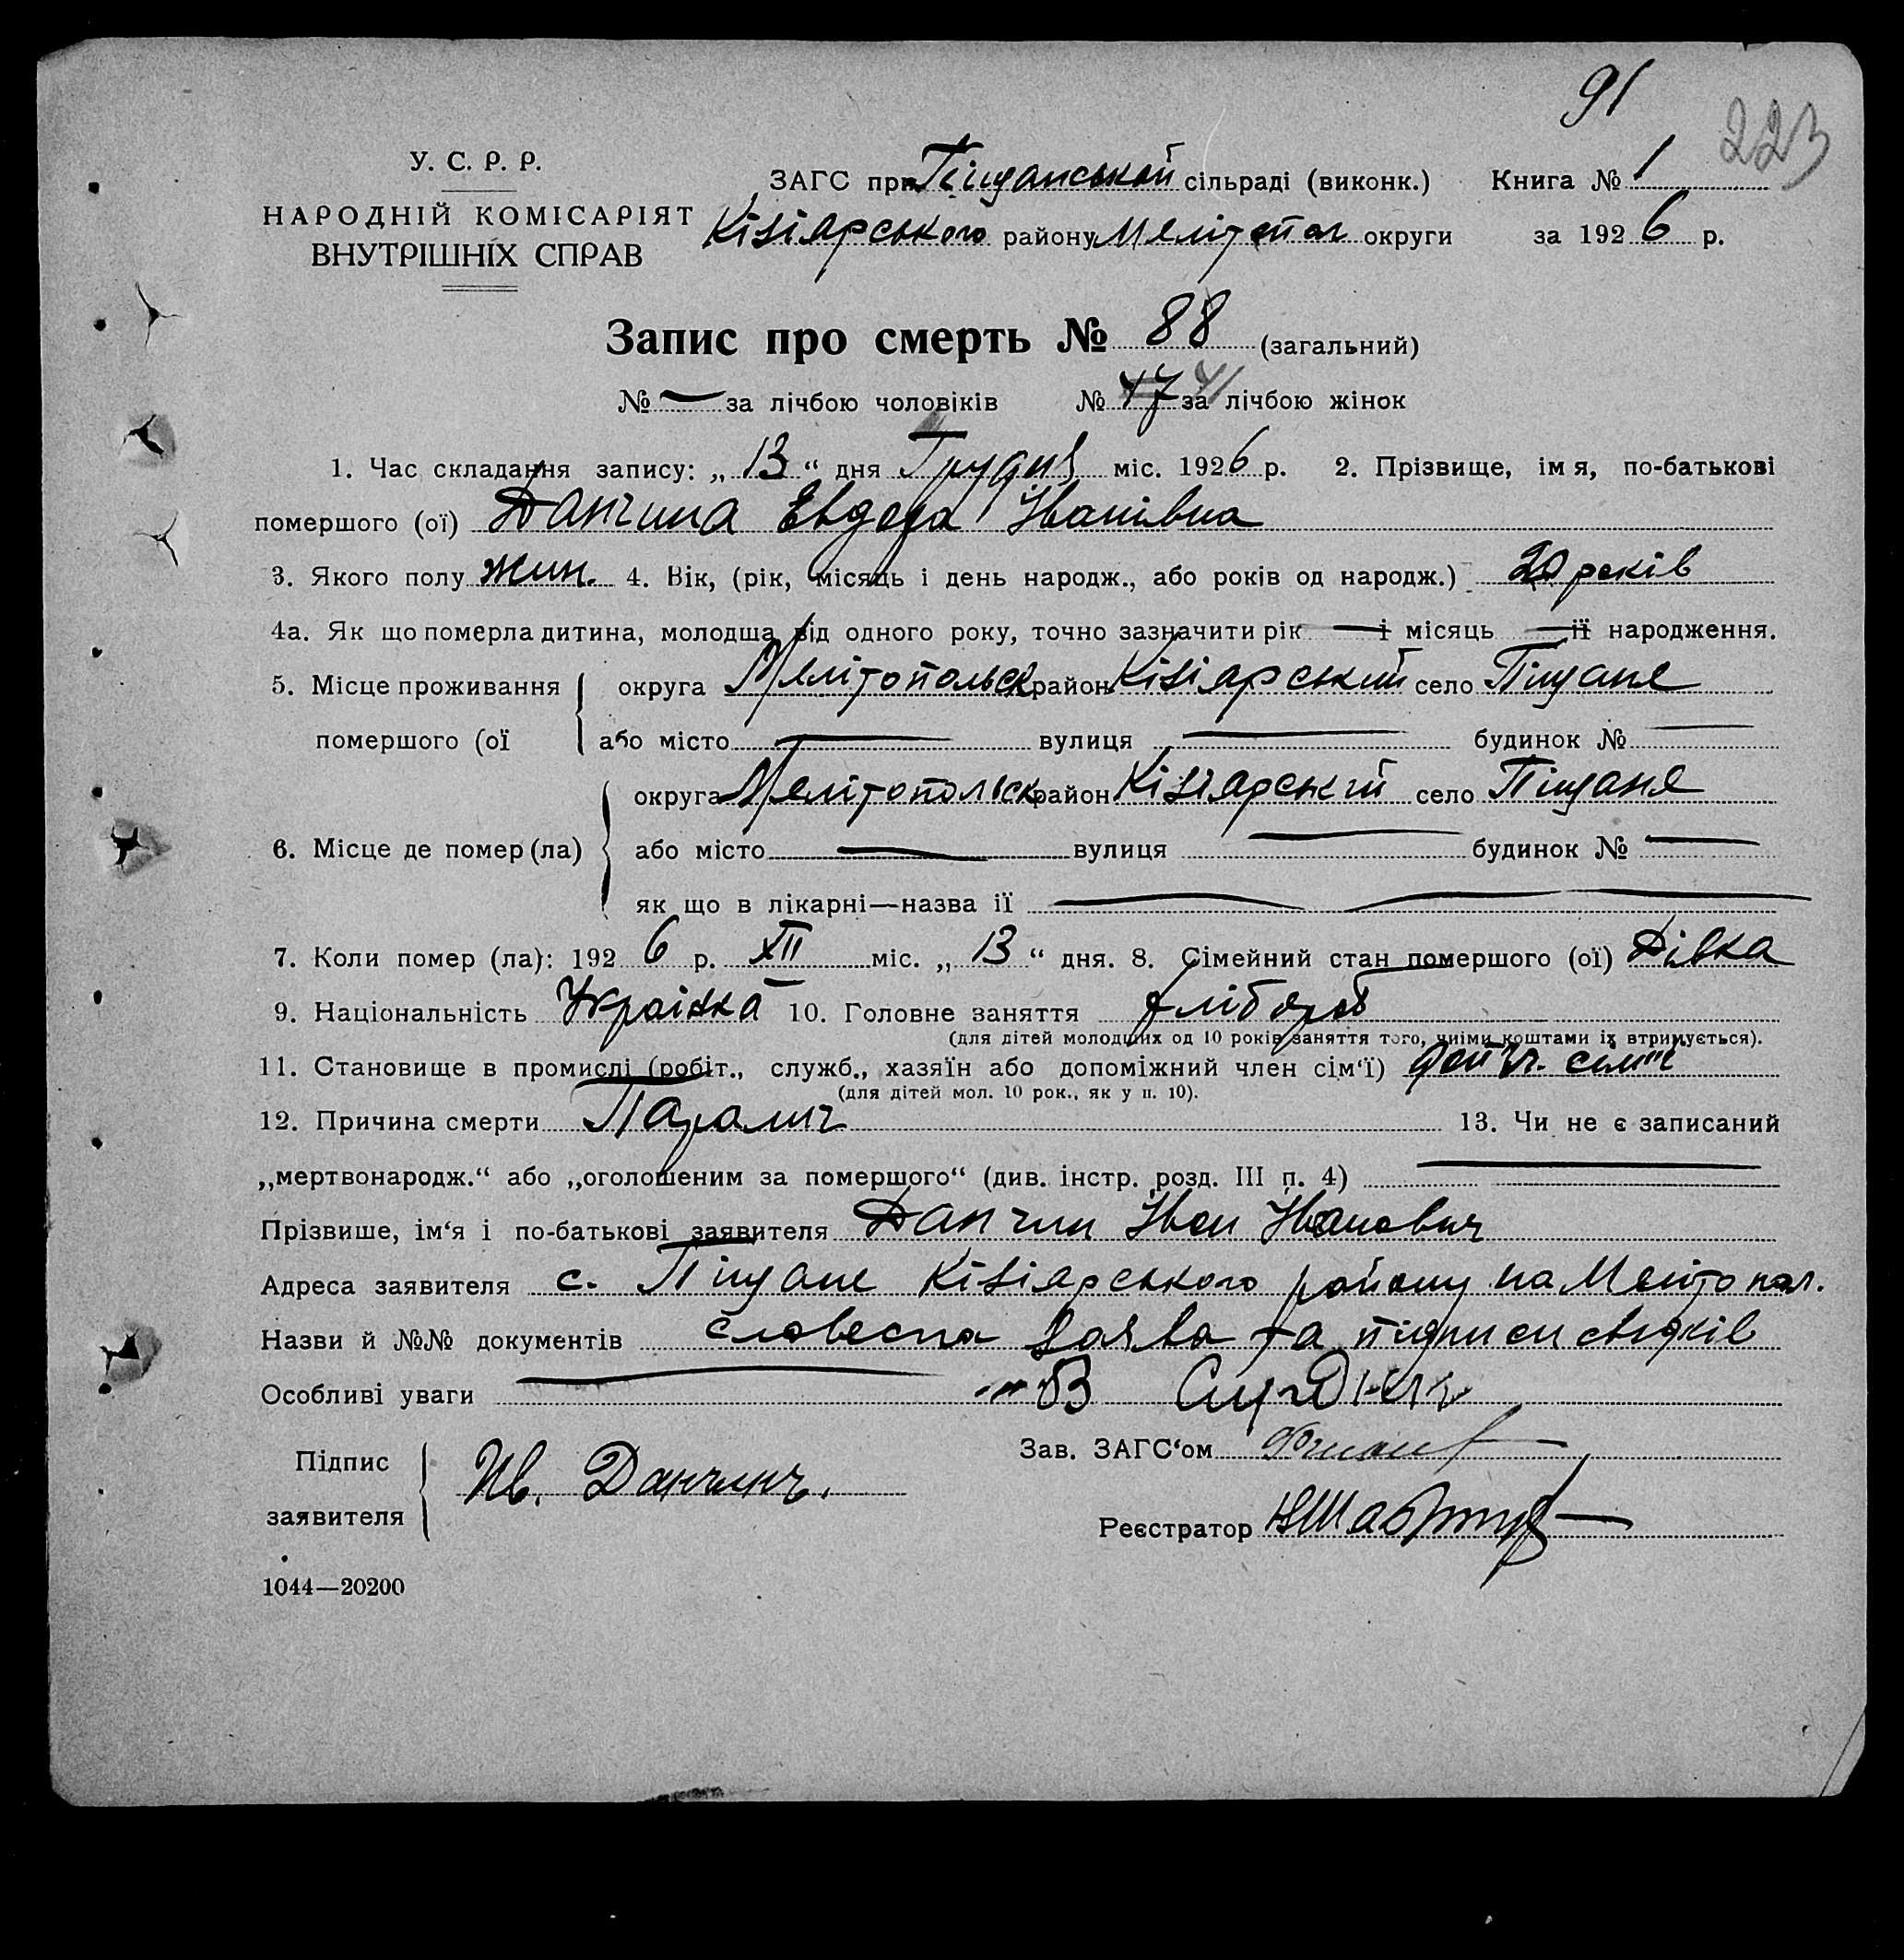 91
223
У. С. Р. Р.
НАРОДНІЙ КОМІСАРІЯТ
ВНУТРІШНІХ СПРАВ
ЗАГС при Піщанській сільраді (виконк.) Книга № 1
Кізіярського району Мелітопол округи за 1926 р.
Запис про смерть № 88 (загальний)
№ — за лічбою чоловіків № 47 41 за лічбою жінок
1. Час складання запису: „ 13 “ дня Грудня міс. 1926 р. 2. Прізвище, імя, по-батькові
помершого (ої) Данчина Евдора Іванівна
3. Якого полу жин. 4. Вік, (рік, місяць і день народж., або років од народж.) 20 років
4а. Як що померла дитина, молодша від одного року, точно зазначити рік — і місяць — її народження.
5. Місце проживання округа Мелітопольськ район Кізіярський село Піщане
помершого (ої або місто — вулиця — будинок № —
округа Мелітопольськ район Кізіярський село Піщане
6. Місце де помер (ла) або місто — вулиця — будинок № —
як що в лікарні—назва ії —
7. Коли помер (ла): 1926 р. XII міс. „ 13 “ дня. 8. Сімейний стан помершого (ої) Дівка
9. Національність Українка 10. Головне заняття хлібороб
(для дітей молодших од 10 років заняття того, чиїми коштами їх втримується).
11. Становище в промислі (робіт., служб., хазяїн або допоміжний член сім‘ї)
(для дітей мол. 10 рок., як у п. 10).
12. Причина смерти Паралич 13. Чи не є записаний
„мертвонародж.“ або „оголошеним за помершого“ (див. інстр. розд. III п. 4) —
Прізвише, ім‘я і по-батькові заявителя Данчин Іван Іванович
Адреса заявителя с. Піщане Кізіярського району на Мелітопол.
Назви й №№ документів словесна заява та підписи свідків
Особливі уваги —
Зав. ЗАГС‘ом
Підпис
заявителя Ив. Данчинъ.
Реєстратор
1044—20200